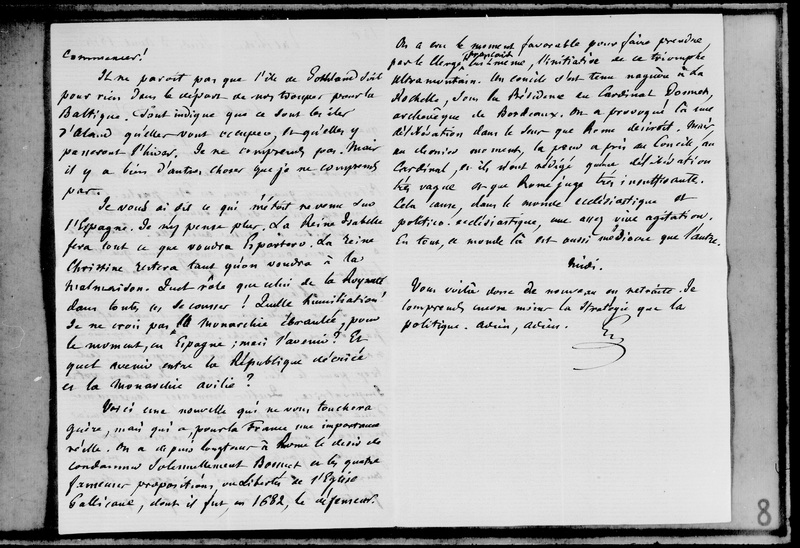 commencer !
Il ne paroit pas que l'île de Gothland soit
pour rien dans le départ de nos troupes pour la
Baltique. Tout indique que ce sont les îles
d'Aland qu'elles vont occuper, et qu'elles y
passeront l'hiver. Je ne comprends pas. Mais
il y a bien d'autres choses que je ne comprends
pas.
Je vous ai dit ce qui m'étoit revenu sur
l'Espagne. Je n'y pense plus. La Reine Isabelle
fera tout ce que voudra Espartero. La Reine
Christine restera tant qu'on voudra à la
Malmaison. Quel rôle que celui de la Royauté
dans toutes ces secousses ! Quelle humiliation !
Je ne crois pas la monarchie ébranlée, pour
le moment, en Espagne ; mais l'avenir ? Et
quel avenir entre la République décriée
et la monarchie avilie ?
Voici une nouvelle qui ne vous touchera
guère, mais qui a, pour la France une importance
réelle. On a depuis longtems à Rome le désir de
condamner solennellement Bossuet et les quatre
fameuses propositions, ou Libertés de l'Eglise
Gallicane, dont il fut, en 1682, le défenseur.
On a cru le moment favorable pour faire prendre,
par le Clergé français lui-même, l'initiative de ce triomphe
ultramontain. Un concile s'est tenu naguère à La
Rochelle, sous la Présidence du Cardinal Donnet,
archevêque de Bordeaux. On a provoqué là une
délibération dans le sens que Rome désiroit. Mais
au dernier moment, la peur a pris au Concile, au
Cardinal, et ils n'ont rédigé qu'une délibération
très vague et que Rome juge très insuffisante.
Cela cause, dans le monde ecclésiastique et
politico-ecclésiastique, une assez vive agitation.
En tout, ce monde là est aussi médiocre que l'autre.
Midi.
Vous voilà donc de nouveau en retraite. Je
comprends encore moins la stratégie que la
politique. Adieu, adieu.
8